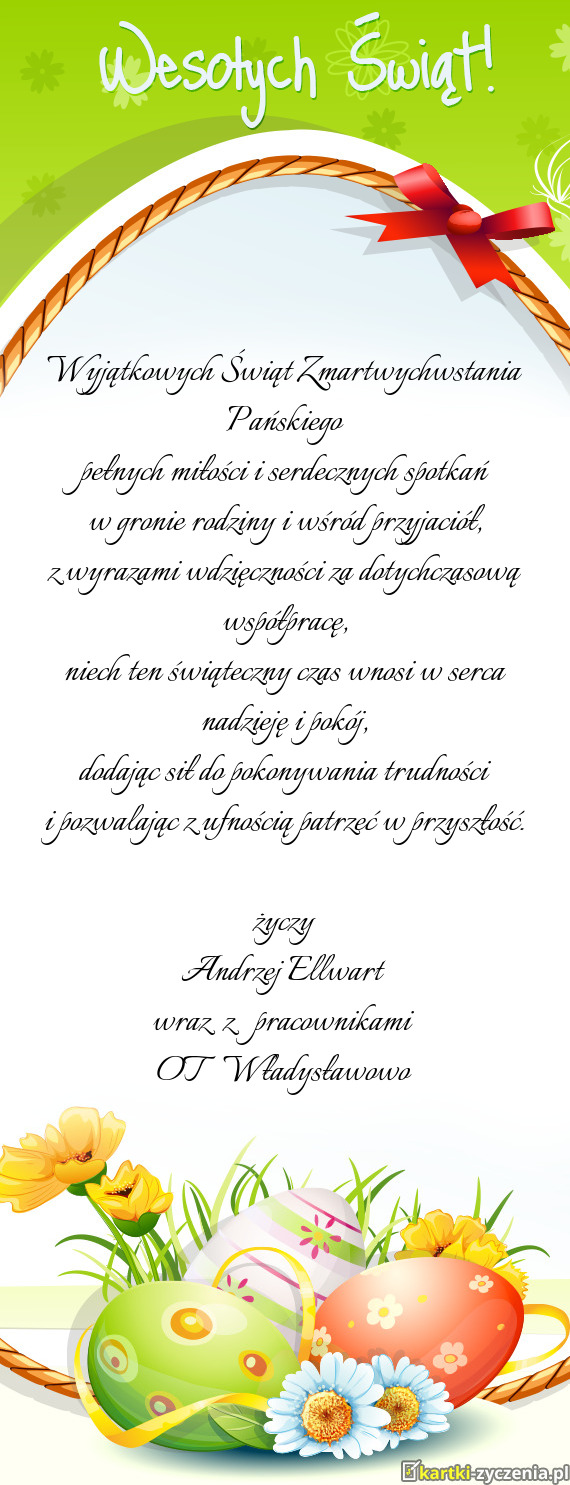 Wesołych Świąt!
Wyjątkowych Świąt Zmartwychwstania
Pańskiego
pełnych miłości i serdecznych spotkań
w gronie rodziny i wśród przyjaciół,
z wyrazami wdzięczności za dotychczasową
współpracę,
niech ten świąteczny czas wnosi w serca
nadzieję i pokój,
dodając sił do pokonywania trudności
i pozwalając z ufnością patrzeć w przyszłość.
życzy
Andrzej Ellwart
wraz z pracownikami
OT Władysławowo
kartki-zyczenia.pl